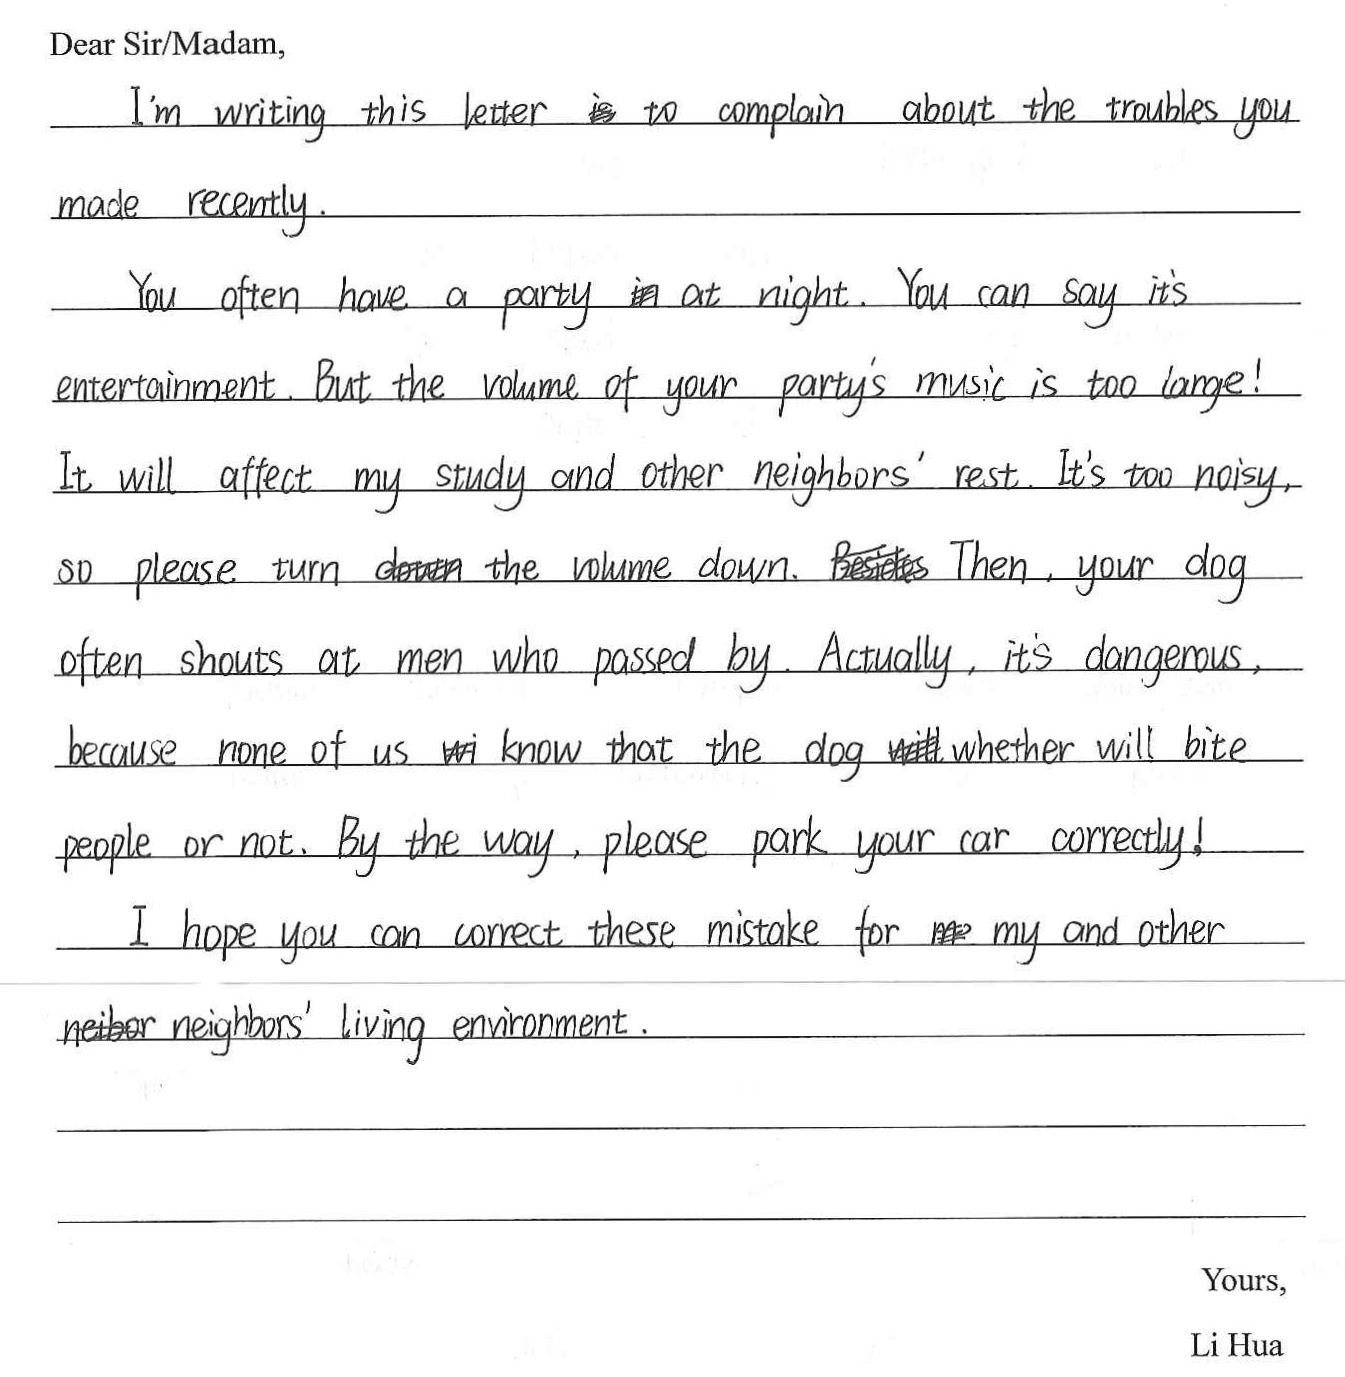 Dear Sir/Madam,
I'm writing this letter to complain about the troubles you
made recently.
You often have a party at night. You can say it's
entertainment. But the volume of your party's music is too large!
It will affect my study and other neighbors' rest. It's too noisy,
so please turn the volume down. Then, your dog
often shouts at men who passed by. Actually, it's dangerous,
because none of us know that the dog whether will bite
people or not. By the way, please park your car correctly!
I hope you can correct these mistake for my and other
neighbors' living environment.
Yours,
Li Hua